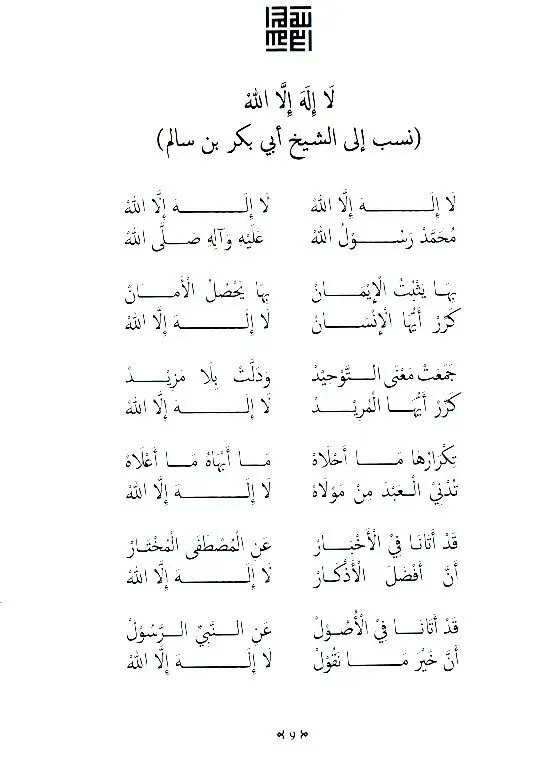 لَا إِلَهَ إِلَّا اللهْ
(نسب إلى الشيخ أبي بكر بن سالم)
لَا إِلَـــــــهَ إِلَّا اللهْ لَا إِلَـــــــهَ إِلَّا اللهْ
مُحَمَّدْ رَسْـــــوْلُ اللهْ عَلَيْهِ وَآلِهِ صَـلَّى اللهْ
بِهَـا يَثْبُتْ الْإِيْمَـــانْ بِهَا يَحْصُلْ الْأَمَـانْ
كَرِّرْ أَيُّهَا الْإِنْسَـــانْ لَا إِلَـــــــهَ إِلَّا اللهْ
جَمَعَتْ مَعْنَى الـتَّوْحِيْدْ وَدَلَّتْ بِلَا مَزِيْـــدْ
كَرِّرْ أَيُّهَـــا الْمُرِيْـــدْ لَا إِلَـــــــهَ إِلَّا اللهْ
تِكْرَارُهَا مَـــا أَحْلَاهْ مَــا أَبْهَاهْ مَــا أَعْلَاهْ
تُدْنِيْ الْـعَبْدَ مِنْ مَوْلَاهْ لَا إِلَـــــــهَ إِلَّا اللهْ
قَدْ أَتَانَـا فِيْ الْأَخْبَـــارْ عَنِ الْمُصْطَفَى الْمُخْتَـارْ
أَنَّ أَفْضَلَ الْأَذْكَـارْ لَا إِلَـــــــهَ إِلَّا اللهْ
قَدْ أَتَانَـــا فِيْ الْأُصُوْلْ عَنِ الـنَّبِيِّ الـرَّسُوْلْ
أَنَّ خَيْرَ مَـــا نَقُوْلْ لَا إِلَـــــــهَ إِلَّا اللهْ
٩